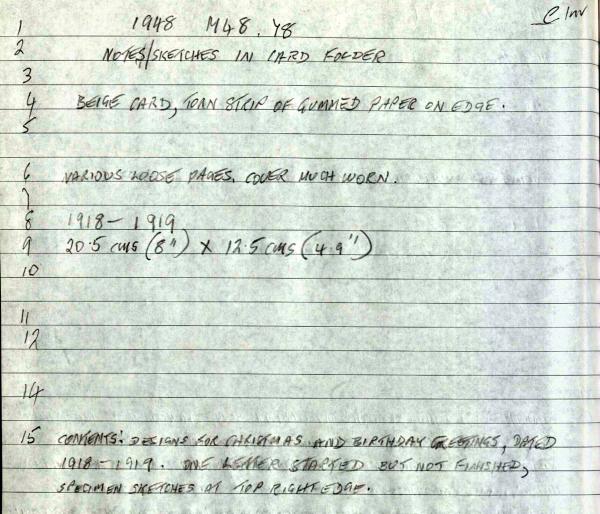 e Inv
1 1948 M48.Y8
2 NOTES/SKETCHES IN CARD FOLDER
3
4 BEIGE CARD, TORN STRIP OF GUMMED PAPER ON EDGE.
5
6 VARIOUS LOOSE PAGES. COVER MUCH WORN.
7
8 1918 – 1919
9 20.5 cms (8") X 12.5 cms (4.9")
10
11
12
14
15 CONTENTS: DESIGNS FOR CHRISTMAS AND BIRTHDAY GREETINGS, DATED
1918 – 1919. ONE LETTER STARTED BUT NOT FINISHED,
SPECIMEN SKETCHES AT TOP RIGHT EDGE.